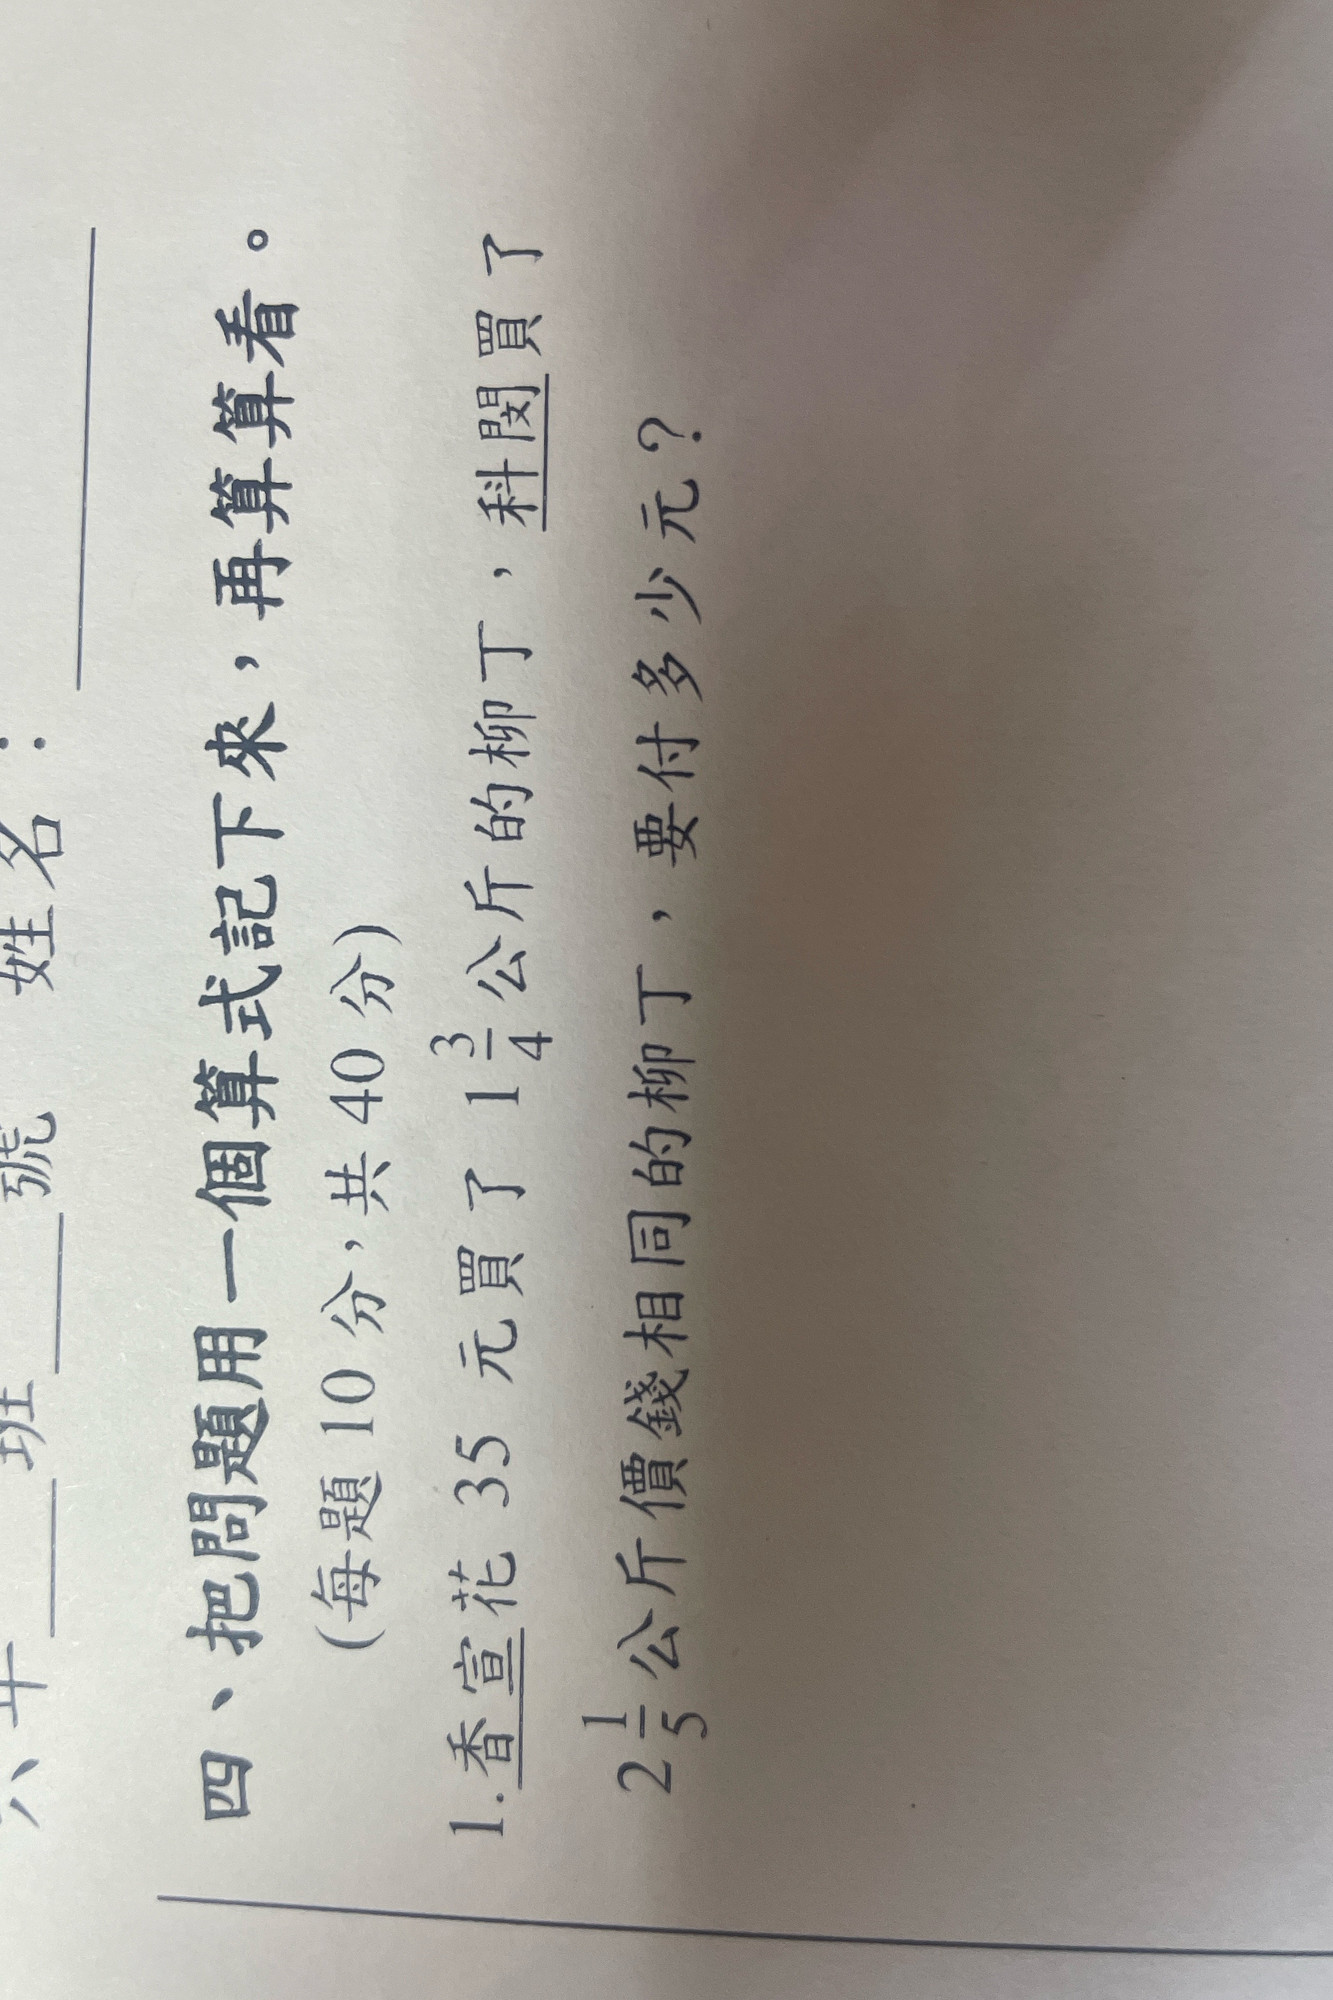 六年___班___號 姓名：______
四、把問題用一個算式記下來，再算算看。
(每題10分，共40分)
1.香宣花 35 元買了 1 3/4 公斤的柳丁，科閔買了
2 1/5 公斤價錢相同的柳丁，要付多少元？